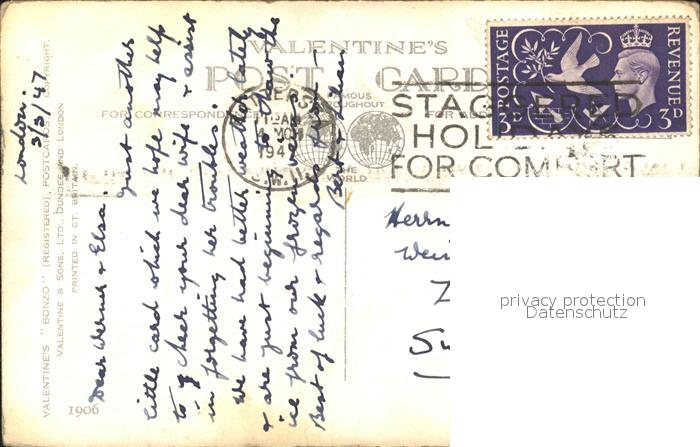 VALENTINE'S
POST CARD
FOR CORRESPONDENCE
FAMOUS
THROUGHOUT
THE
WORLD
VALENTINE'S "BONZO" (REGISTERED), POSTCARDS. COPYRIGHT.
VALENTINE & SONS, LTD., DUNDEE AND LONDON
PRINTED IN GT. BRITAIN.
1906
London.
3/3/47
Dear Werner & Elsa.
Just another
little card which we hope may help
to cheer your dear wife & assist
in forgetting her troubles.
We have had better weather lately
& are just beginning to thaw the
ice from our frozen
Best of luck & regards from -
Bert & Lilian
POSTAGE
REVENUE
3D
3D
STAGGERED
HOLIDAYS
FOR COMFORT
MCH
194
S.W.1
Herrn
Z
privacy protection
Datenschutz